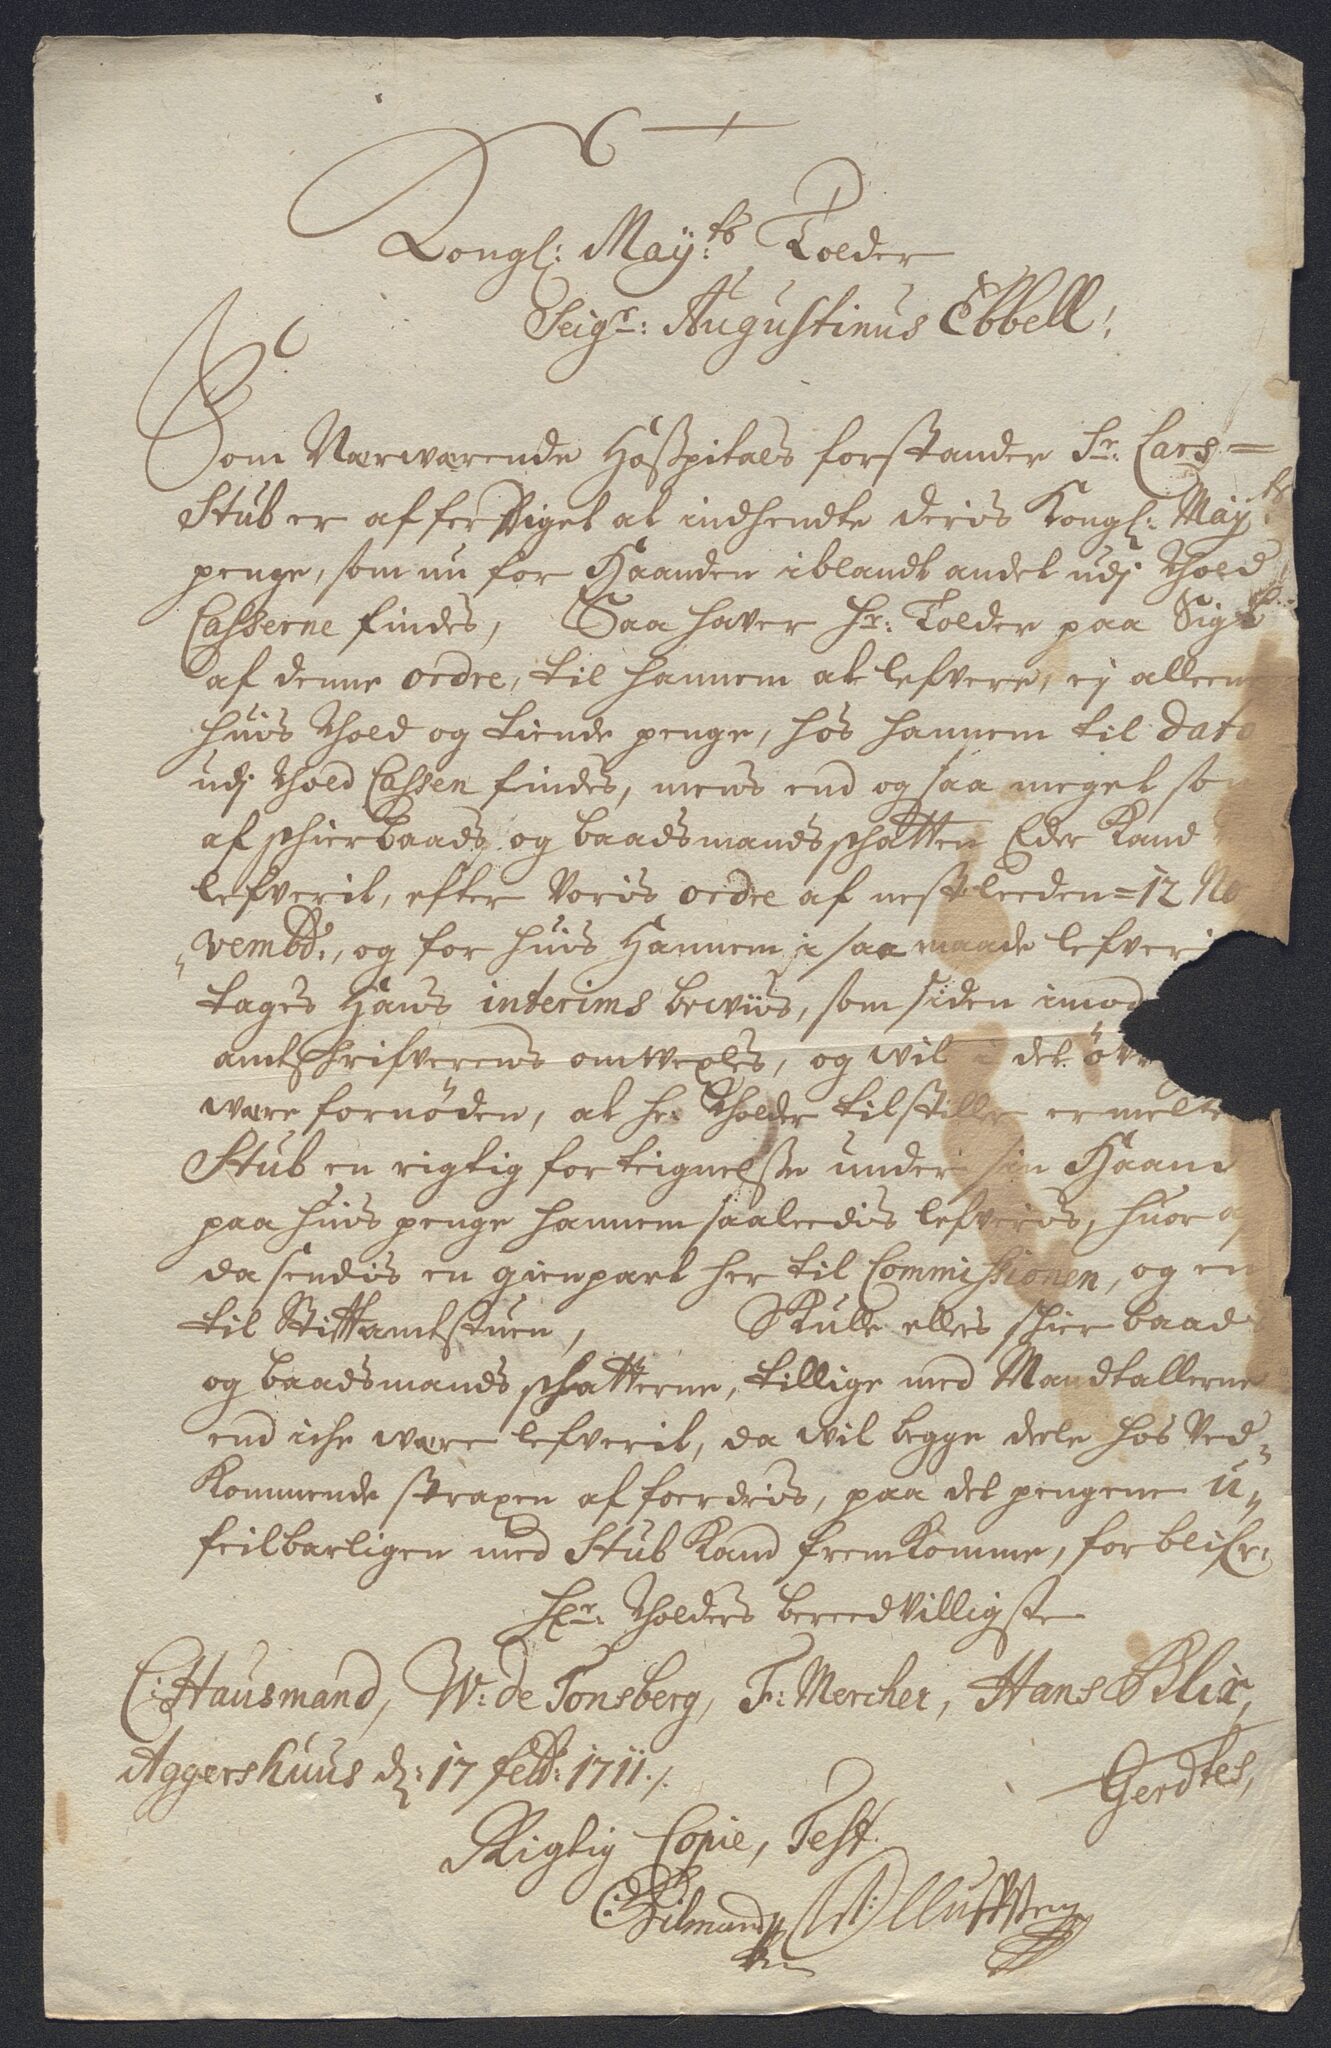 Kongl: May:ts Tolder
Seigr: Augustinus Ebbell!
Som Nærwærende Hosspitals forstander Sr: Lars
Stub er afferdiget at indhendte deris Kongl: May:ts
penge, som nu for Haanden iblandt andet udj Thold
Casserne findes, Saa haver Hr: Tolder paa Sigt
af denne ordre, til hannem at lefvere, ej alleene
huis Thold og tiende penge, hos hannem til dato
udj Thold Cassen findes, mens end og saa meget som
af schierbaads og baadsmands schatten Eder Kand
lefverit, efter Voris ordre af nestleeden = 12 No
vembr:, og for huis Hannem i saa maade lefveri
tages Hans interims beviis, som siden imod
amtschrifverens omvexles, og wil i det øv
være fornøden, at hr: Tholder tilstiller ermelte
Stub en rigtig forteignelsse under sin Haand
paa huis penge hannem saaleedis lefveris, huor af
da sendis en gienpart her til Commissionen, og en
til Stiftamtstuen, Skulle ellers schier baads
og baadsmands schatterne, tillige med Mandtallerne
end iche være lefverit, da wil begge deele hos Ved
Kommende strapen affoerdris, paa det pengene u
feilbarligen med Stub Kand fremKomme, forblifr:
Hr: Tholders bereedvilligste
C: Hausmand, W: de Tonsberg, F: Mercher, Hans Blix,
Aggershuus d: 17 febr: 1711 /.
Gerdtes,
Rigtig Copie, Test.